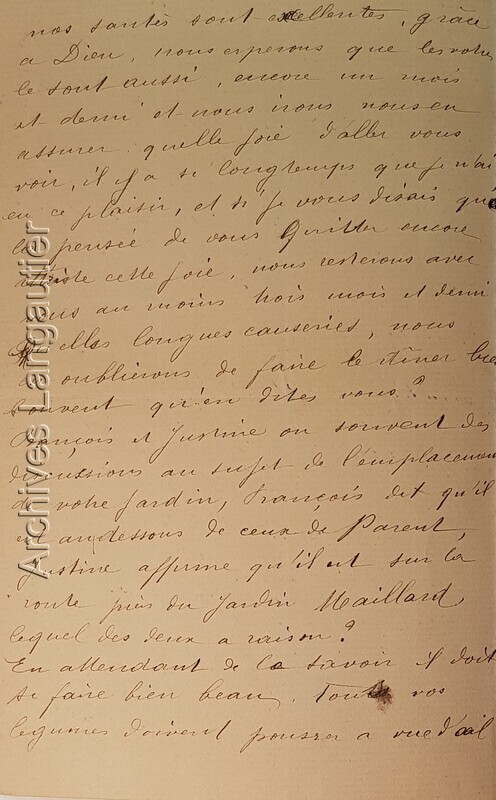 nos santés sont excellentes, grâce
a Dieu, nous esperons que les votres
le sont aussi, encore un mois
et demi et nous irons nous en
assurer quelle joie d'aller vous
voir, il y a si longtemps que je n'ai
eu ce plaisir, et si je vous disais que
la pensée de vous Quitter encore
attriste cette joie, nous resterons avec
vous au moins trois mois et demi
elles longues causeries, nous
oublierons de faire le diner bien
souvent qu'en dites vous?
François et Justine on souvent des
discussions au sujet de l'emplacement
de votre Jardin, François dit qu'il
est au dessous de ceux de Parent,
Justine affirme qu'il est sur la
route près du Jardin Maillard,
lequel des deux a raison?
En attendant de le savoir il doit
se faire bien beau, Tous vos
legumes doivent pousser a vue d'œil
Archives Langautier